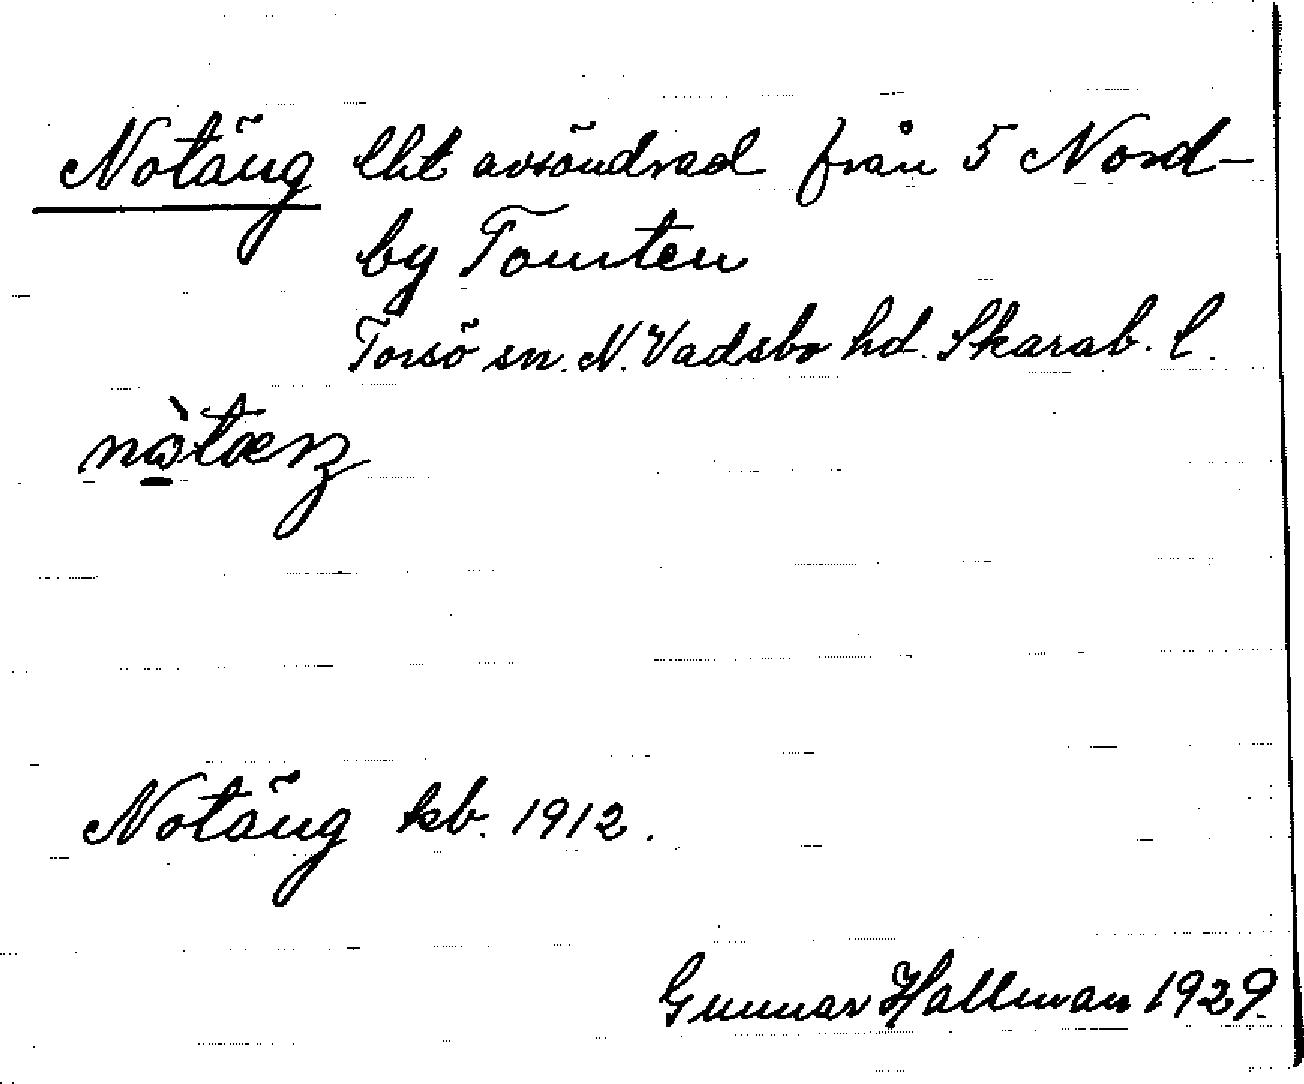 Notäng lht avsöndrad från 5 Nord-
by Tomten
Torsö sn. N. Vadsbo hd. Skarab. l.
nòtæŋ
Notäng kb. 1912.
Gunnar Hallman 1929